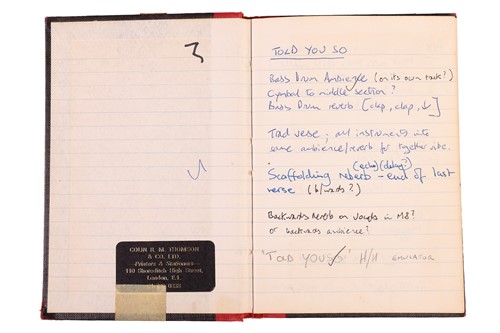 3
COLIN R. M. THOMSON
& CO. LTD.
Printers & Stationers
110 Shoreditch High Street,
London, E.1.
TOLD YOU SO
Bass Drum Ambience (on its own track?)
Cymbal to middle section?
Bass Drum reverb [clap, clap, ↓]
3rd verse; all instruments into
same ambience/reverb for together vibe.
(echo) (delay?)
Scaffolding reverb - end of last
verse (b/wards?)
Backwards reverb on Vocals in M8?
or backwards ambience?
'TOLD YOU SO' H/H EMULATOR